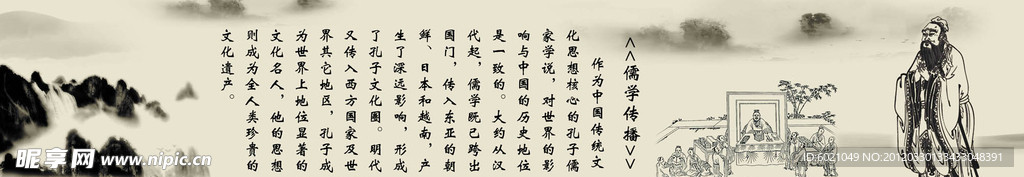 <<儒学传播>>
作为中国传统文
化思想核心的孔子儒
家学说，对世界的影
响与中国的历史地位
是一致的。大约从汉
代起，儒学既已跨出
国门，传入东亚的朝
鲜、日本和越南，产
生了深远影响，形成
了孔子文化圈。明代
又传入西方国家及世
界其它地区，孔子成
为世界上地位显著的
文化名人，他的思想
则成为全人类珍贵的
文化遗产。
昵享网 www.nipic.cn
ID:6021049 NO:20120330133433048391